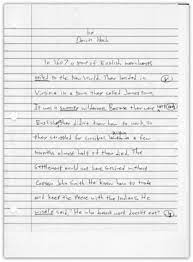 by
In 1607 a boat of English merchants
sailed to the New World. They landed in
Virginia in a town they called Jamestown.
It was a wilderness. Because they were
Englishmen didn't know how to work, so
they struggled for survival. Within a few
months almost half of them died. The
settlement would not have survived without
Captain John Smith. He knew how to trade
and keep the peace with the Indians. He
said "He who doesn't work doesn't eat."